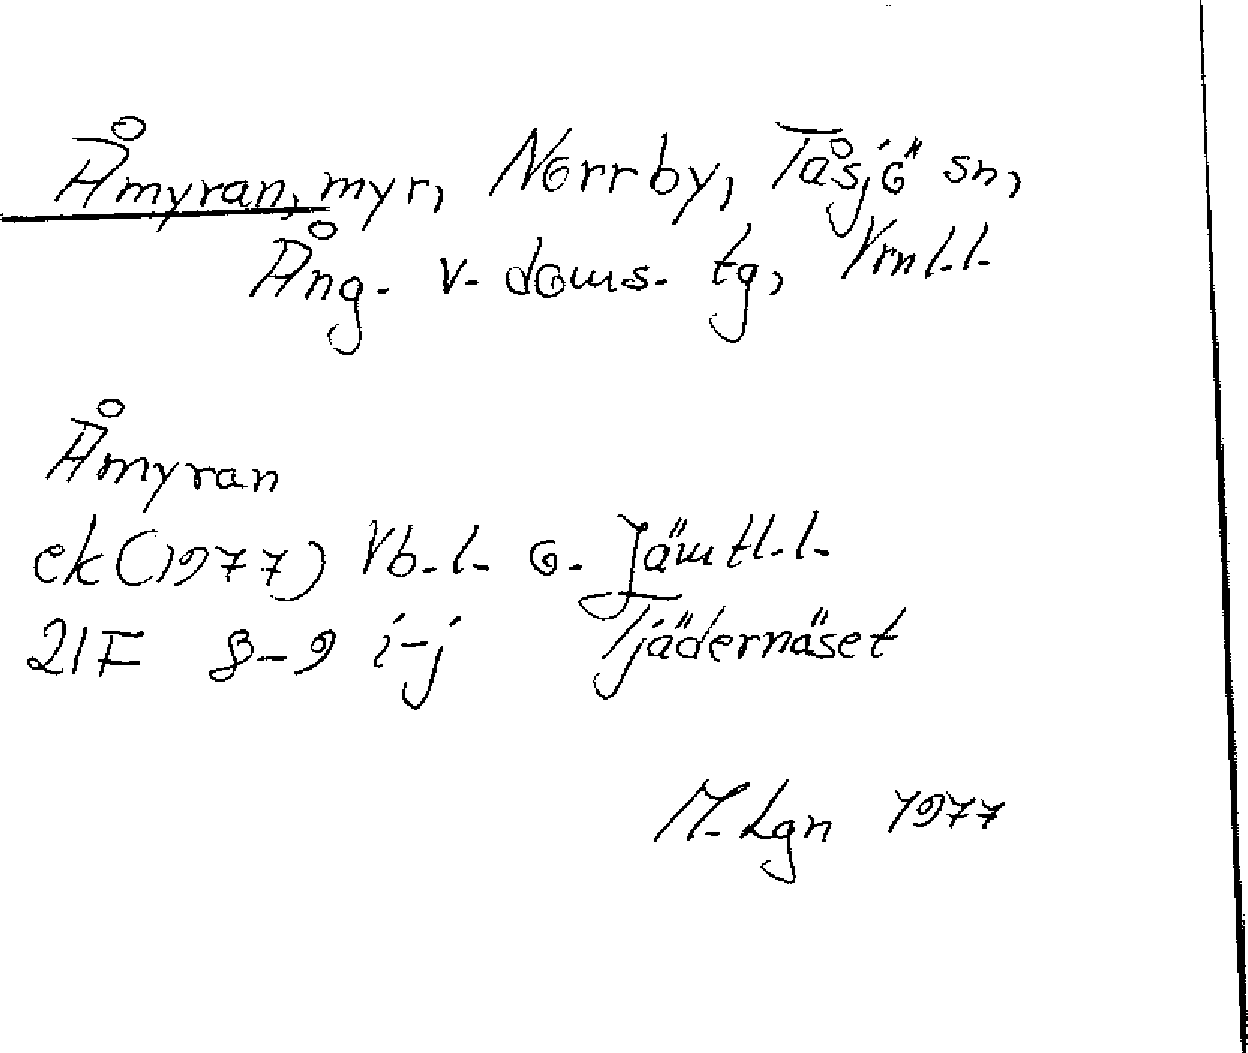 Åmyran, myr, Norrby, Tåsjö sn,
Ång. v. doms. tg, Vrnl.l.
Åmyran
ek (1977) Vb.l. o. Jämtl.l.
21F 8-9 i-j Tjädernäset
M. Lgn 1977